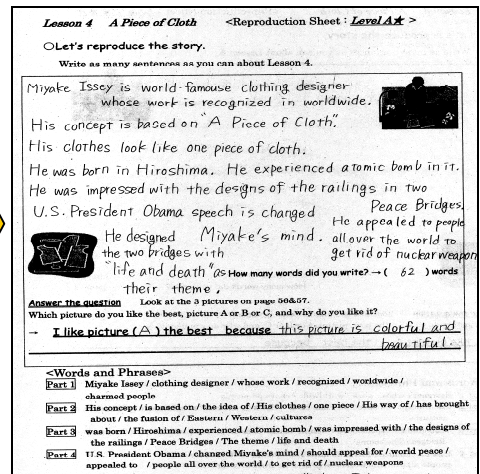 Lesson 4 A Piece of Cloth <Reproduction Sheet : Level A★ >
○Let's reproduce the story.
Write as many sentences as you can about Lesson 4.
Miyake Issey is world-famouse clothing designer
whose work is recognized in worldwide.
His concept is based on "A Piece of Cloth".
His clothes look like one piece of cloth.
He was born in Hiroshima. He experienced atomic bomb in it.
He was impressed with the designs of the railings in two
Peace Bridges.
U.S. President Obama speech is changed
Miyake's mind.
He appealed to people
all over the world to
get rid of nuclear weapon
He designed
the two bridges with
"life and death" as
their theme.
How many words did you write? → ( 62 ) words
Answer the question Look at the 3 pictures on page 56&57.
Which picture do you like the best, picture A or B or C, and why do you like it?
→ I like picture ( A ) the best because this picture is colorful and
beautiful.
<Words and Phrases>
Part 1 Miyake Issey / clothing designer / whose work / recognized / worldwide /
charmed people
Part 2 His concept / is based on / the idea of / His clothes / one piece / His way of / has brought
about / the fusion of / Eastern / Western / cultures
Part 3 was born / Hiroshima / experienced / atomic bomb / was impressed with / the designs of
the railings / Peace Bridges / The theme / life and death
Part 4 U.S. President Obama / changed Miyake's mind / should appeal for / world peace /
appealed to / people all over the world / to get rid of / nuclear weapons